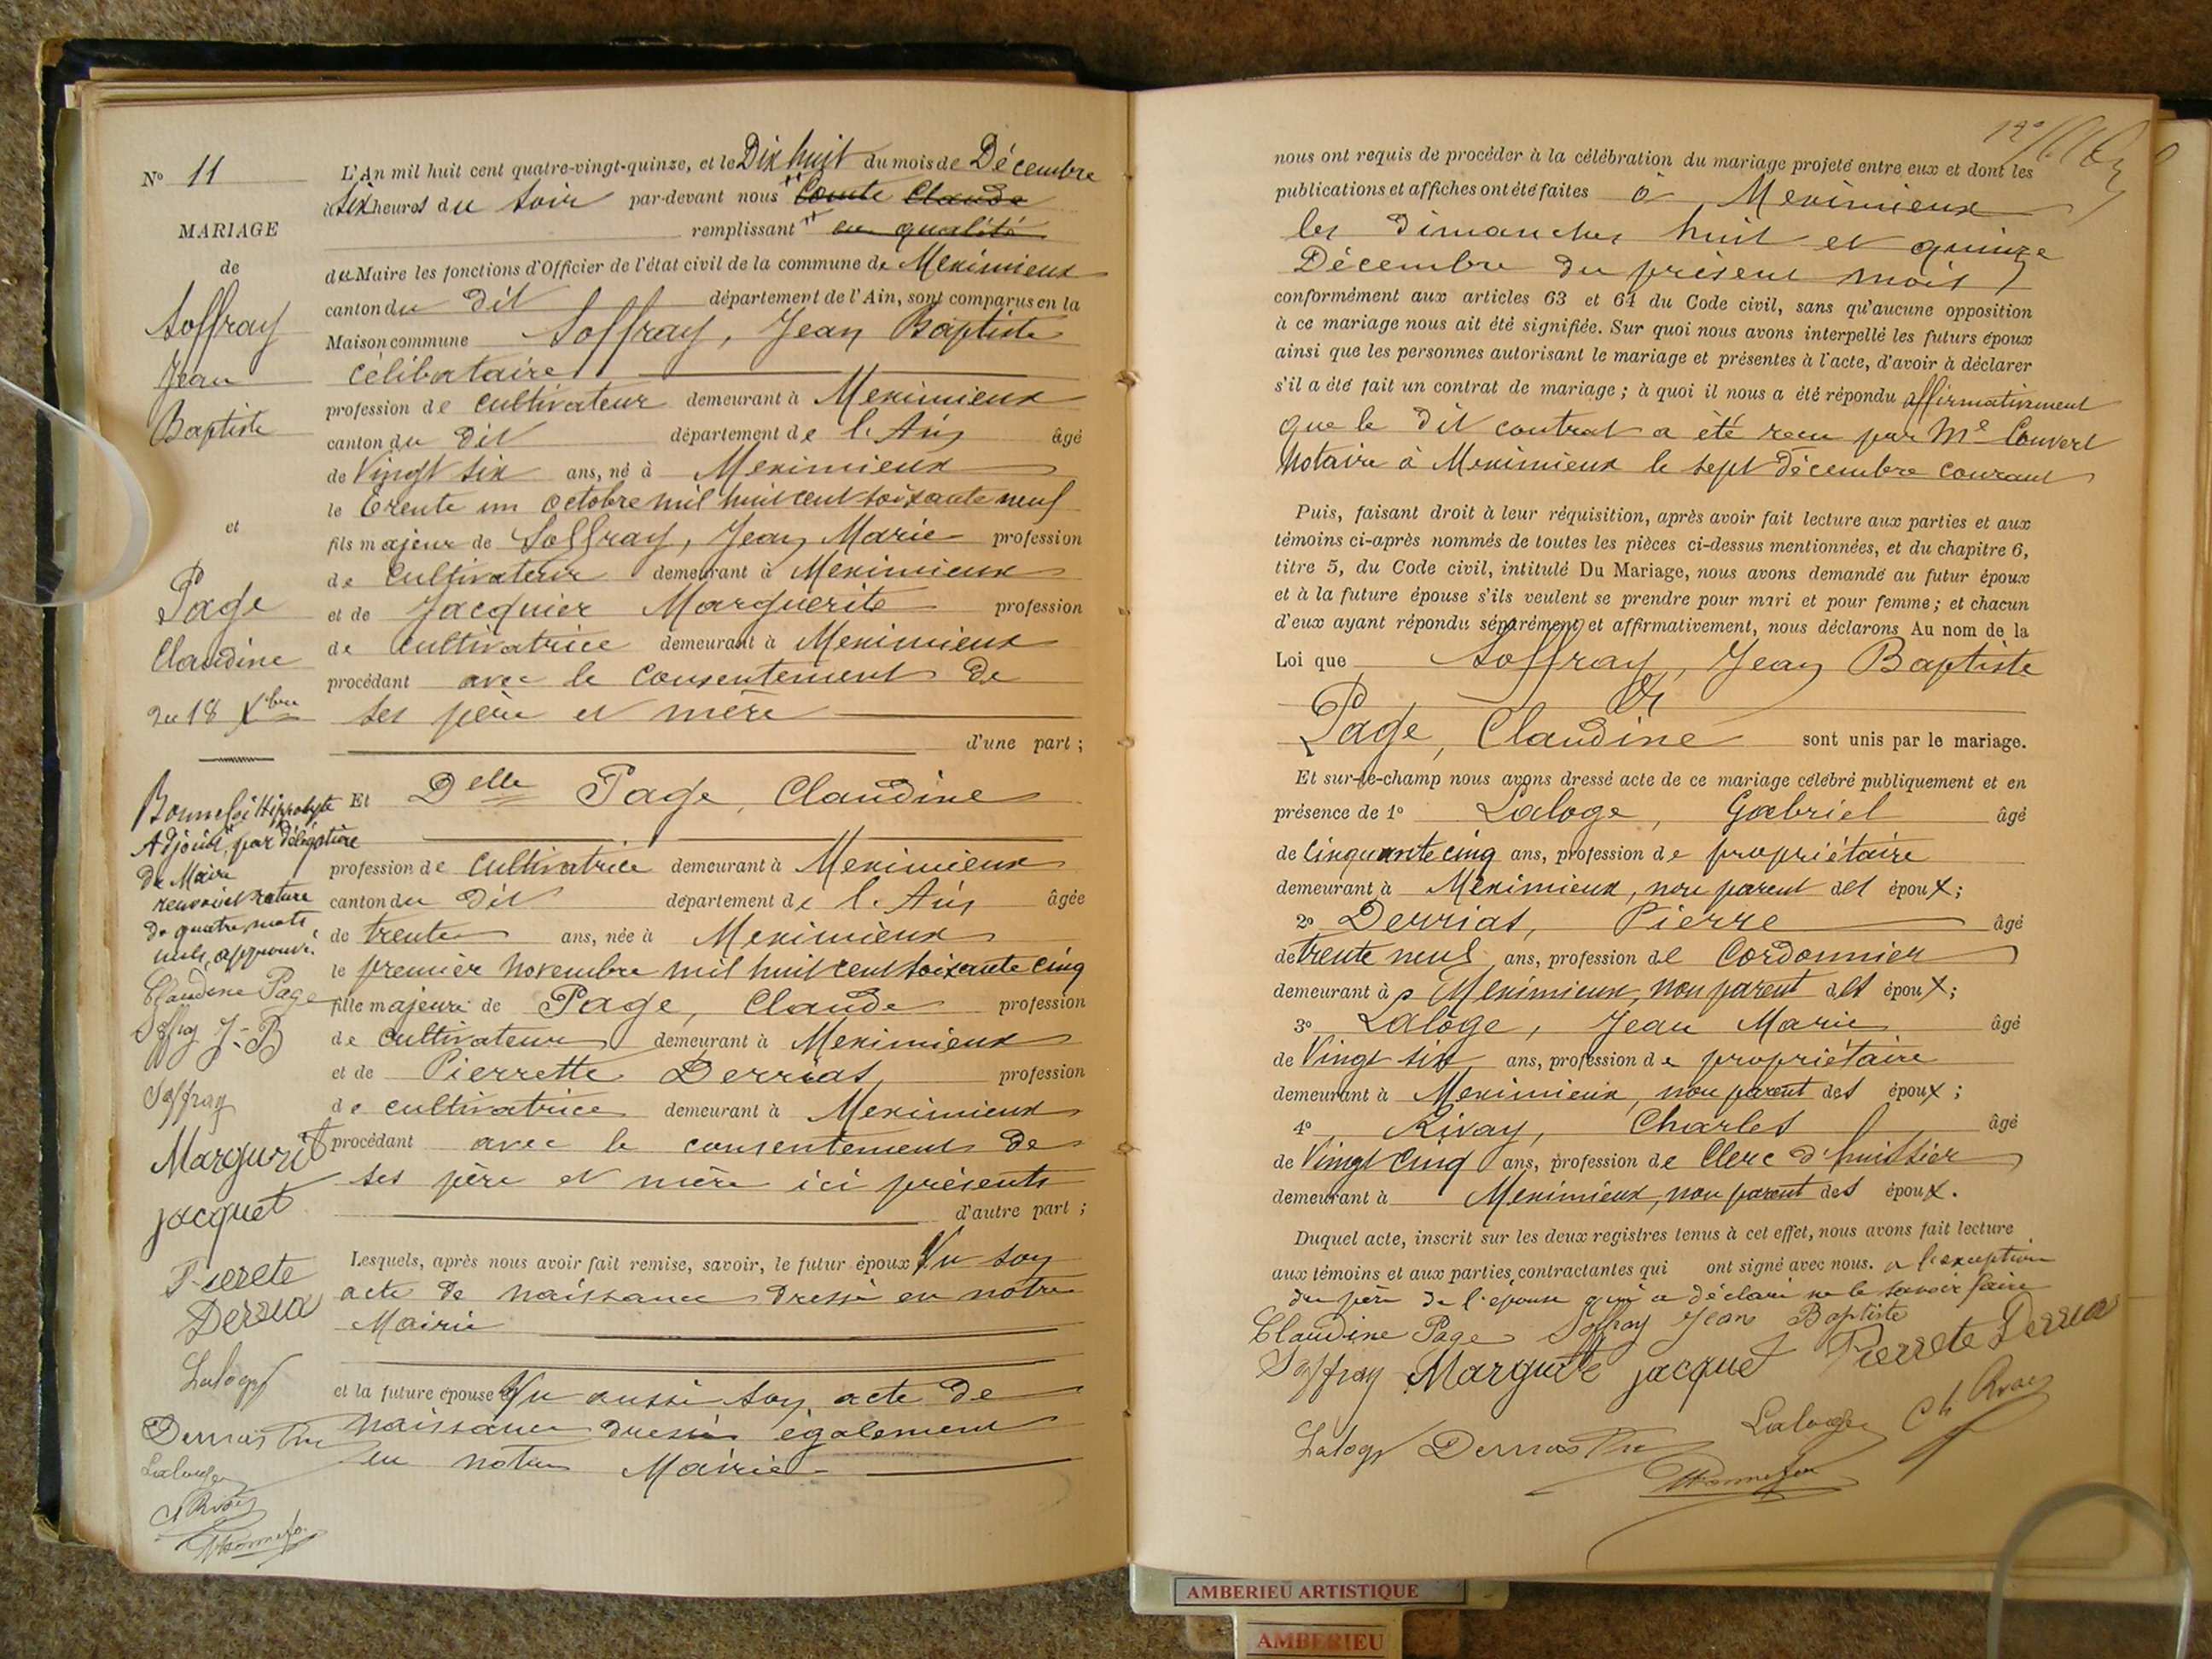 N° 11
MARIAGE
de
Soffray
Jean
Baptiste
et
Page
Claudine
Du 18 Xbre
Bonnefoi Hippolyte
Adjoint, par délégation
du Maire
renvoi et rature
de quatre mots
nuls, approuvé.
Claudine Page
Soffray J-B
Soffray
Margurit
jacquet
Pierete
Derria
Laloge
Derrias Pre
Laloge
Ch Rivay
HBonnefoi
L'An mil huit cent quatre-vingt-quinze, et le Dix huit du mois de Décembre
à six heures du soir par-devant nous Comte Claude
remplissant en qualité
du Maire les fonctions d'Officier de l'état civil de la commune de Meximieux
canton du dit département de l'Ain, sont comparus en la
Maison commune Soffray, Jean Baptiste
célibataire
profession de cultivateur demeurant à Meximieux
canton du dit département de l'Ain âgé
de Vingt six ans, né à Meximieux
le trente un octobre mil huit cent soixante neuf
fils majeur de Soffray, Jean Marie profession
de cultivateur demeurant à Meximieux
et de Jacquier Marguerite profession
de cultivatrice demeurant à Meximieux
procédant avec le consentement de
ses père et mère
d'une part ;
Et Delle Page, Claudine
profession de cultivatrice demeurant à Meximieux
canton du dit département de l'Ain âgée
de trente ans, née à Meximieux
le premier novembre mil huit cent soixante cinq
fille majeure de Page, Claude profession
de cultivateur demeurant à Meximieux
et de Pierrette Derrias profession
de cultivatrice demeurant à Meximieux
procédant avec le consentement de
ses père et mère ici présents
d'autre part ;
Lesquels, après nous avoir fait remise, savoir, le futur époux Vu son
acte de naissance dressé en notre
Mairie
et la future épouse Vu aussi son acte de
naissance dressé également
en notre Mairie
nous ont requis de procéder à la célébration du mariage projeté entre eux et dont les
publications et affiches ont été faites à Meximieux
les dimanches huit et quinze
Décembre du présent mois
conformément aux articles 63 et 64 du Code civil, sans qu'aucune opposition
à ce mariage nous ait été signifiée. Sur quoi nous avons interpellé les futurs époux
ainsi que les personnes autorisant le mariage et présentes à l'acte, d'avoir à déclarer
s'il a été fait un contrat de mariage ; à quoi il nous a été répondu affirmativement
que le dit contrat a été reçu par Me Convert
Notaire à Meximieux le sept décembre courant
Puis, faisant droit à leur réquisition, après avoir fait lecture aux parties et aux
témoins ci-après nommés de toutes les pièces ci-dessus mentionnées, et du chapitre 6,
titre 5, du Code civil, intitulé Du Mariage, nous avons demandé au futur époux
et à la future épouse s'ils veulent se prendre pour mari et pour femme ; et chacun
d'eux ayant répondu séparément et affirmativement, nous déclarons Au nom de la
Loi que Soffray, Jean Baptiste
Et
Page, Claudine sont unis par le mariage.
Et sur-le-champ nous avons dressé acte de ce mariage célébré publiquement et en
présence de 1° Laloge, Gabriel âgé
de cinquante cinq ans, profession de propriétaire
demeurant à Meximieux, non parent des époux ;
2° Derrias, Pierre âgé
de trente neuf ans, profession de cordonnier
demeurant à Meximieux, non parent des époux ;
3° Laloge, Jean Marie âgé
de Vingt six ans, profession de propriétaire
demeurant à Meximieux, non parent des époux ;
4° Rivay, Charles âgé
de Vingt cinq ans, profession de Clerc d'huissier
demeurant à Meximieux, non parent des époux.
Duquel acte, inscrit sur les deux registres tenus à cet effet, nous avons fait lecture
aux témoins et aux parties contractantes qui ont signé avec nous. à l'exception
du père de l'épouse qui a déclaré ne le savoir faire
Claudine Page Soffray Jean Baptiste
Soffray Margurite jacquet Pierrete Derria
Laloge Derrias Pre Laloge Ch Rivay
HBonnefoi
AMBERIEU ARTISTIQUE
AMBERIEU